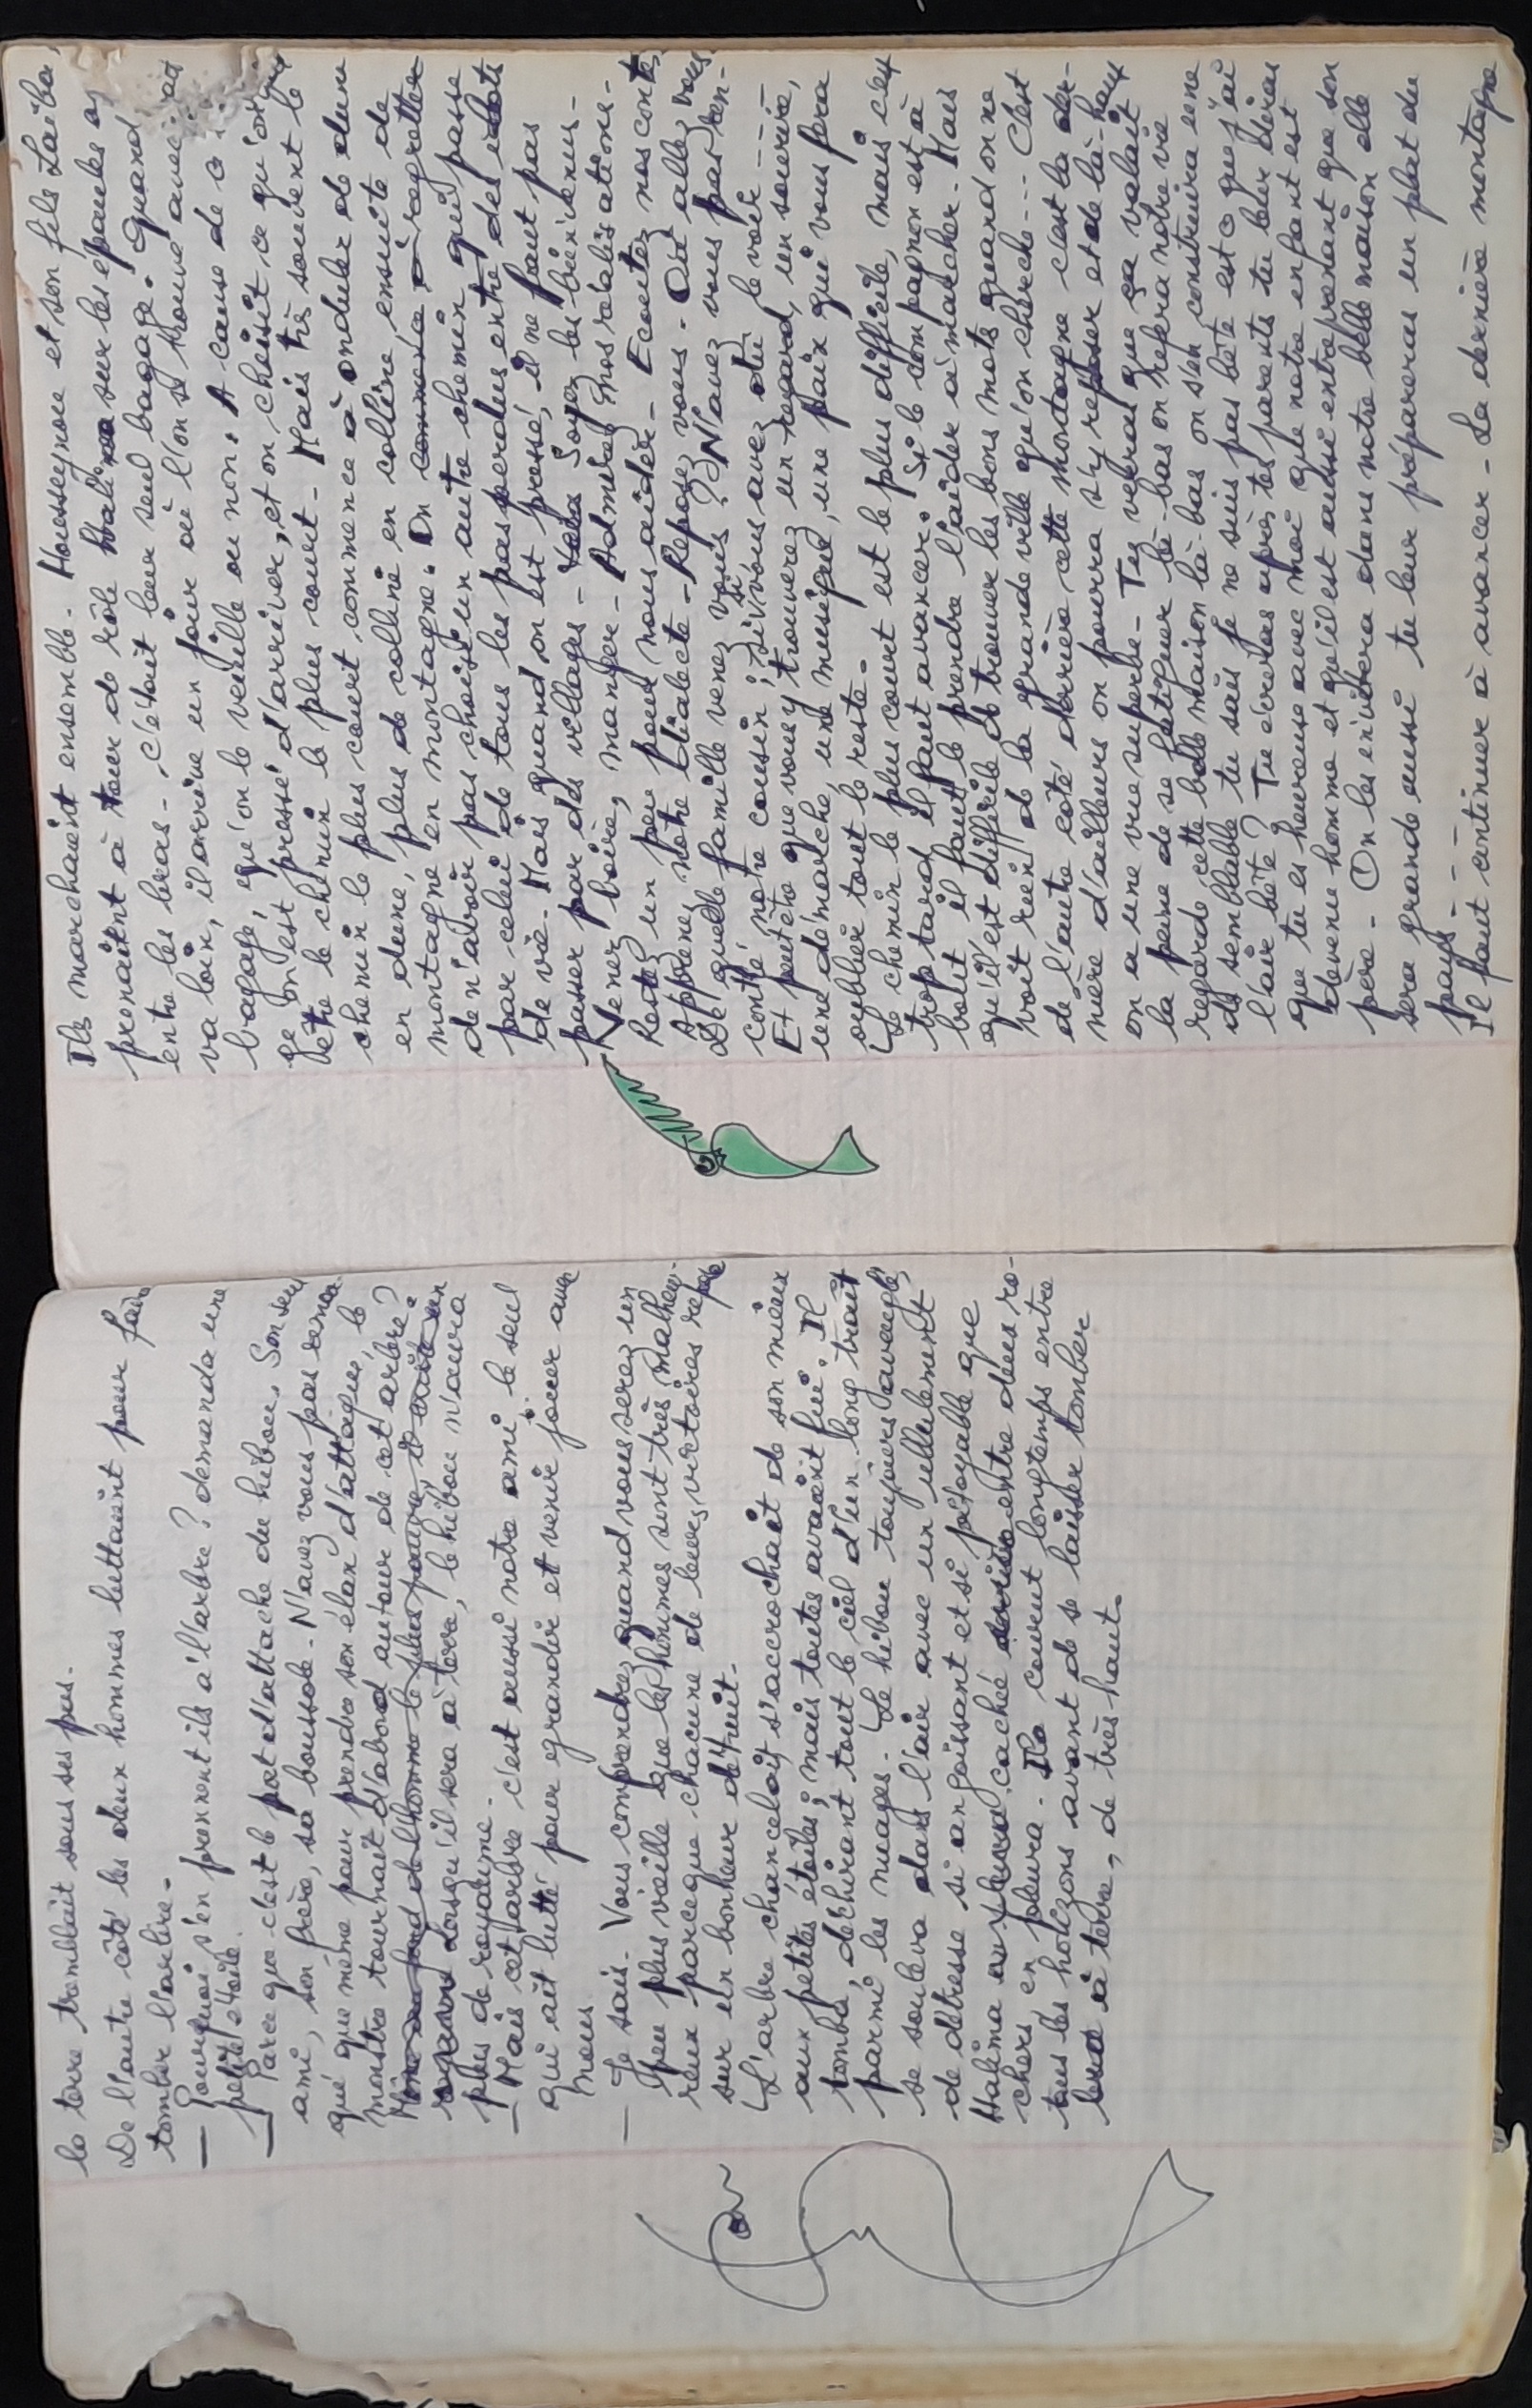 la terre tremblait sous ses pas.
De l'autre côté les deux hommes luttaient pour faire
tomber l'arbre.
— Pourquoi s'en prennent ils à l'arbre ? demanda une
petite étoile.
— Parce que c'est le port d'attache du hibou. Son seul
ami, son frère, sa boussole. N'avez vous pas remar
qué que même pour prendre son élan d'attaquer, le
monstre tournait d'abord autour de cet arbre ?
Lorsqu'il sera à terre, le hibou n'aura
plus de royaume.
— Mais cet arbre c'est aussi notre ami, le seul
qui ait lutté pour grandir et venir jouer avec
nous
— Je sais. Vous comprendrez quand vous serez un
peu plus vieille que les hommes sont très malheu-
reux parceque chacune de leurs victoires repose
sur un bonheur détruit.
L'arbre chancelait, s'accrochait de son mieux
aux petites étoiles, mais toutes avaient fui. Il
tomba, déchirant tout le ciel d'un long trait
parmi les nuages. Le hibou toujours aveuglé,
se souleva dans l'air avec un ullulement
de détresse si angoissant et si pitoyable que
Halima cachée entre deux ro-
chers en pleura. Ils coururent longtemps entre
tous les horizons avant de se laisser tomber
à terre, de très haut.
Ils marchaient ensemble. Housseynou et son fils Laïba,
prenaient à tour de rôle Halima sur les épaules ou
entre les bras. C'était leur seul bagage. Quand
va loin, il arrive un jour où l'on se trouve avec un
bagage, qu'on le veuille ou non. A cause de ce
ge on est pressé d'arriver, et on choisit ce qu'on
être le chemin le plus court. Mais très souvent le
chemin le plus court commence à onduler de dune
en dune, puis de colline en colline, ensuite de
montagne en montagne. On commence à regretter
de n'avoir pas choisi un autre chemin qui passe
par celui de tous les pas perdus entre des îlots
de vie. Mais quand on est pressé, il ne faut pas
passer par des villages. Soyez les bienvenus.
Venez boire, manger. Admirez nos réalisations.
Restez un peu pour nous aider. Ecoutez nos contes,
Apprenez notre dialecte. Reposez vous. Où allez vous
De quelle famille venez vous ? N'avez vous pas ren-
contré notre cousin ; si, si vous avez dû le voir ---
Et peut être que vous y trouverez un regard, un sourire,
une démarche, une musique, une paix qui vous fera
oublier tout le reste.
Le chemin le plus court est le plus difficile, mais c'est
trop tard il faut avancer. Si le compagnon est à
bout il faut le prendre, l'aider à marcher. Mais
qu'il est difficile de trouver les bons mots quand on ne
voit rien de la grande ville qu'on cherche --- C'est
de l'autre côté derrière cette montagne c'est la der-
nière d'ailleurs on pourra s'y reposer et de là-haut
on a une vue superbe. Tu verras que ça valait
la peine de se fatiguer là-bas on refera notre vie
regarde cette belle maison là-bas on s'en construira une
de semblable tu sais je ne suis pas bête est ce que j'ai
l'air bête ? Tu écriras après tes parents tu leur diras
que tu es heureuse avec moi que notre enfant est
devenu homme et qu'il est aussi entreprenant que son
père. On les invitera dans notre belle maison elle
sera grande aussi tu leur prépareras un plat du
pays ---
Il faut continuer à avancer. La dernière montagne